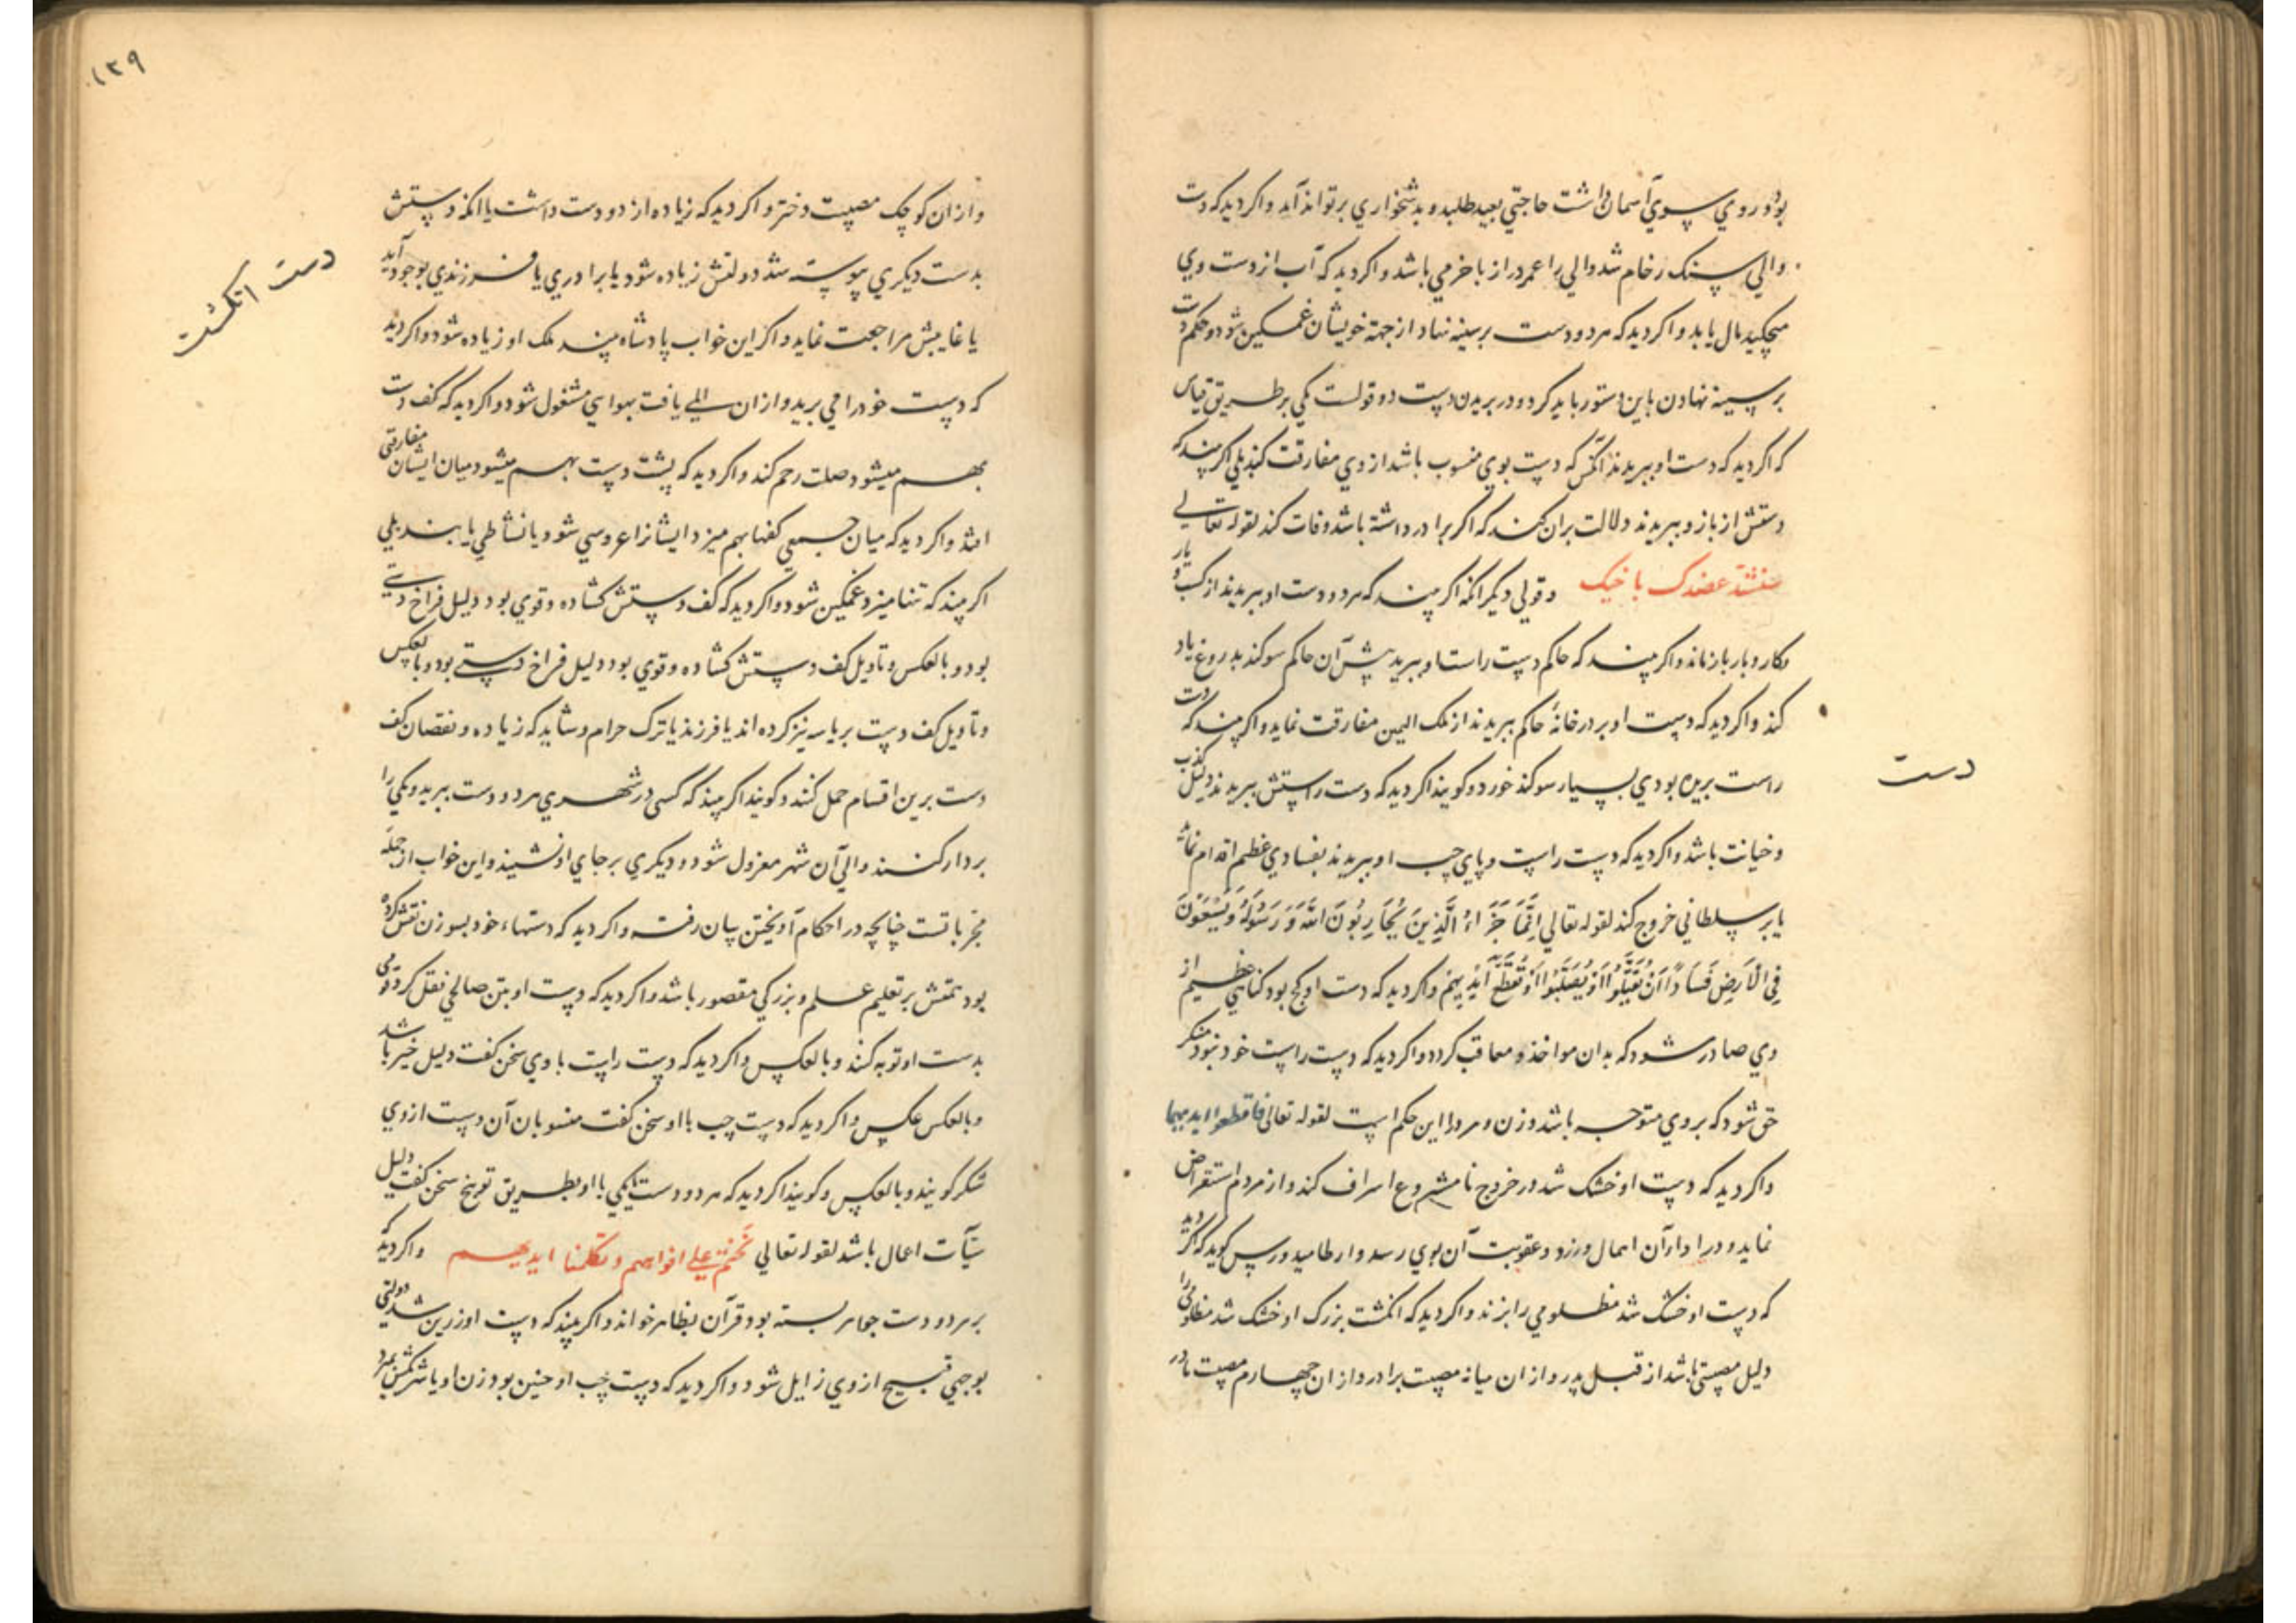 بود و روی سوی آسمان داشت حاجتی بعید طلبد و بدشخواری برتواند آمد و اکر دید که دست
والی سنک رخام شد والی را عمر دراز با خرمی باشد و اکر دید که آب از دست وی
میچکید مال یابد و اکر دید که هر دو دست بر سینه نهاد از جهة خویشان غمکین شود و حکم دست
بر سینه نهادن باین دستور باید کرد و در بریدن دست دو قولست یکی بر طریق قیاس
که اکر دید که دست او ببریدند آنکس که دست بوی منسوب باشد از وی مفارقت کند یلی اکر بیند که
دستش از بازو ببریدند دلالت بران کند که اکر برادر داشته باشد وفات کند لقوله تعالی
سنشد عضدک باخیک و قولی دیکر انکه اکر بیند که هر دو دست او ببریدند از کسب و یار
و کار و بار باز ماند و اکر بیند که حاکم دست راست او ببرید پیش آن حاکم سوکند بدروغ یاد
کند و اکر دید که دست او بر در خانهٔ حاکم ببریدند از ملک الیمین مفارقت نماید و اکر بیند که دست
راست بریده بودی بسیار سوکند خورد و کویند اکر دید که دست راستش ببریدند دلیل کذب
و خیانت باشد و اکر دید که دست راست و پای چپ او ببریدند بفسادی عظیم اقدام نماید
یا بر سلطانی خروج کند لقوله تعالی اِنَّمَا جَزَاءُ الَّذِینَ یُحَارِبُونَ اللّهَ وَرَسُولَهُ وَیَسْعَوْنَ
فِی الْاَرضِ فَسَاداً اَنْ یُقَتَّلُوا اَوْ یُصَلَّبُوا اَوْ تُقَطَّعَ اَیْدِیهِمْ و اکر دید که دست او کج بود کناهی عظیم از
وی صادر شود که بدان مواخذ و معاقب کردد و اکر دید که دست راست خود نبود منکر
حق شود که بر وی متوجه باشد و زن و مرد را این حکم است لقوله تعالی فاقطعوا ایدیهما
و اکر دید که دست او خشک شد در خروج نامشروع اسراف کند و از مردم استقراض
نماید و در ادا آن اهمال ورزد و عقوبت آن بوی رسد و ارطامیدورس کوید که اکر دید
که دست او خشک شد مظلومی را بزند و اکر دید که انکشت بزرک او خشک شد مظلومی را
دلیل مصیبتی باشد از قبل پدر و از ان میانه مصیبت برادر و از ان چهارم مصیبت مادر
دست
۱۳۹
و از ان کوچک مصیبت دختر و اکر دید که زیاده از دو دست داشت یا انکه دستش
بدست دیکری پیوسته شد دولتش زیاده شود یا برادری یا فرزندی بوجود آید
یا غایبش مراجعت نماید و اکر این خواب پادشاه بیند ملک او زیاده شود و اکر دید
که دست خود را می برید و ازان المی یافت بهوایی مشغول شود و اکر دید که کف دست
بهم میشود صلت رحم کند و اکر دید که پشت دست بهم میشود میان ایشان مفارقتی
افتد و اکر دید که میان جمعی کفها بهم میزد ایشانرا عروسی شود یا نشاطی یابند یلی
اکر بیند که تنها میزد غمکین شود و اکر دید که کف دستش کشاده و قوی بود دلیل فراخ دستی
بود و بالعکس و تاویل کف دستش کشاده و قوی بود دلیل فراخ دستی بود و بالعکس
و تاویل کف دست بریاسه نیز کرده اند یا فرزند یا ترک حرام و شاید که زیاده و نقصان کف
دست برین اقسام حمل کنند و کویند اکر بیند که کسی در شهری هر دو دست ببرید و یکی را
بر دار کنند والی آن شهر معزول شود و دیکری بر جای او نشیند و این خواب از جمله
مجرباتست چنانچه در احکام آویختن بیان رفت و اکر دید که دستهاء خود بسوزن نقش کرده
بود همتش بر تعلیم علم و بزرکی مقصور باشد و اکر دید که دست او بتن صالحی نقل کرد قومی
بدست او توبه کنند و بالعکس و اکر دید که دست راست با وی سخن کفت دلیل خیر باشد
و بالعکس عکس و اکر دید که دست چپ با او سخن کفت منسوبان آن دست از وی
شکر کویند و بالعکس و کویند اکر دید که هر دو دست یکی با او بطریق توبیخ سخن کفت دلیل
سیآت اعمال باشد لقوله تعالی نختم علی افواههم و تکلمنا ایدیهم و اکر دید که
بر هر دو دست جواهر بسته بود قرآن بظاهر خواند و اکر بیند که دست او زرین شد دولتی
بوجهی قبیح از وی زایل شود و اکر دید که دست چپ او چنین بود زن او یا شریکش بمیرد
دست انکشت